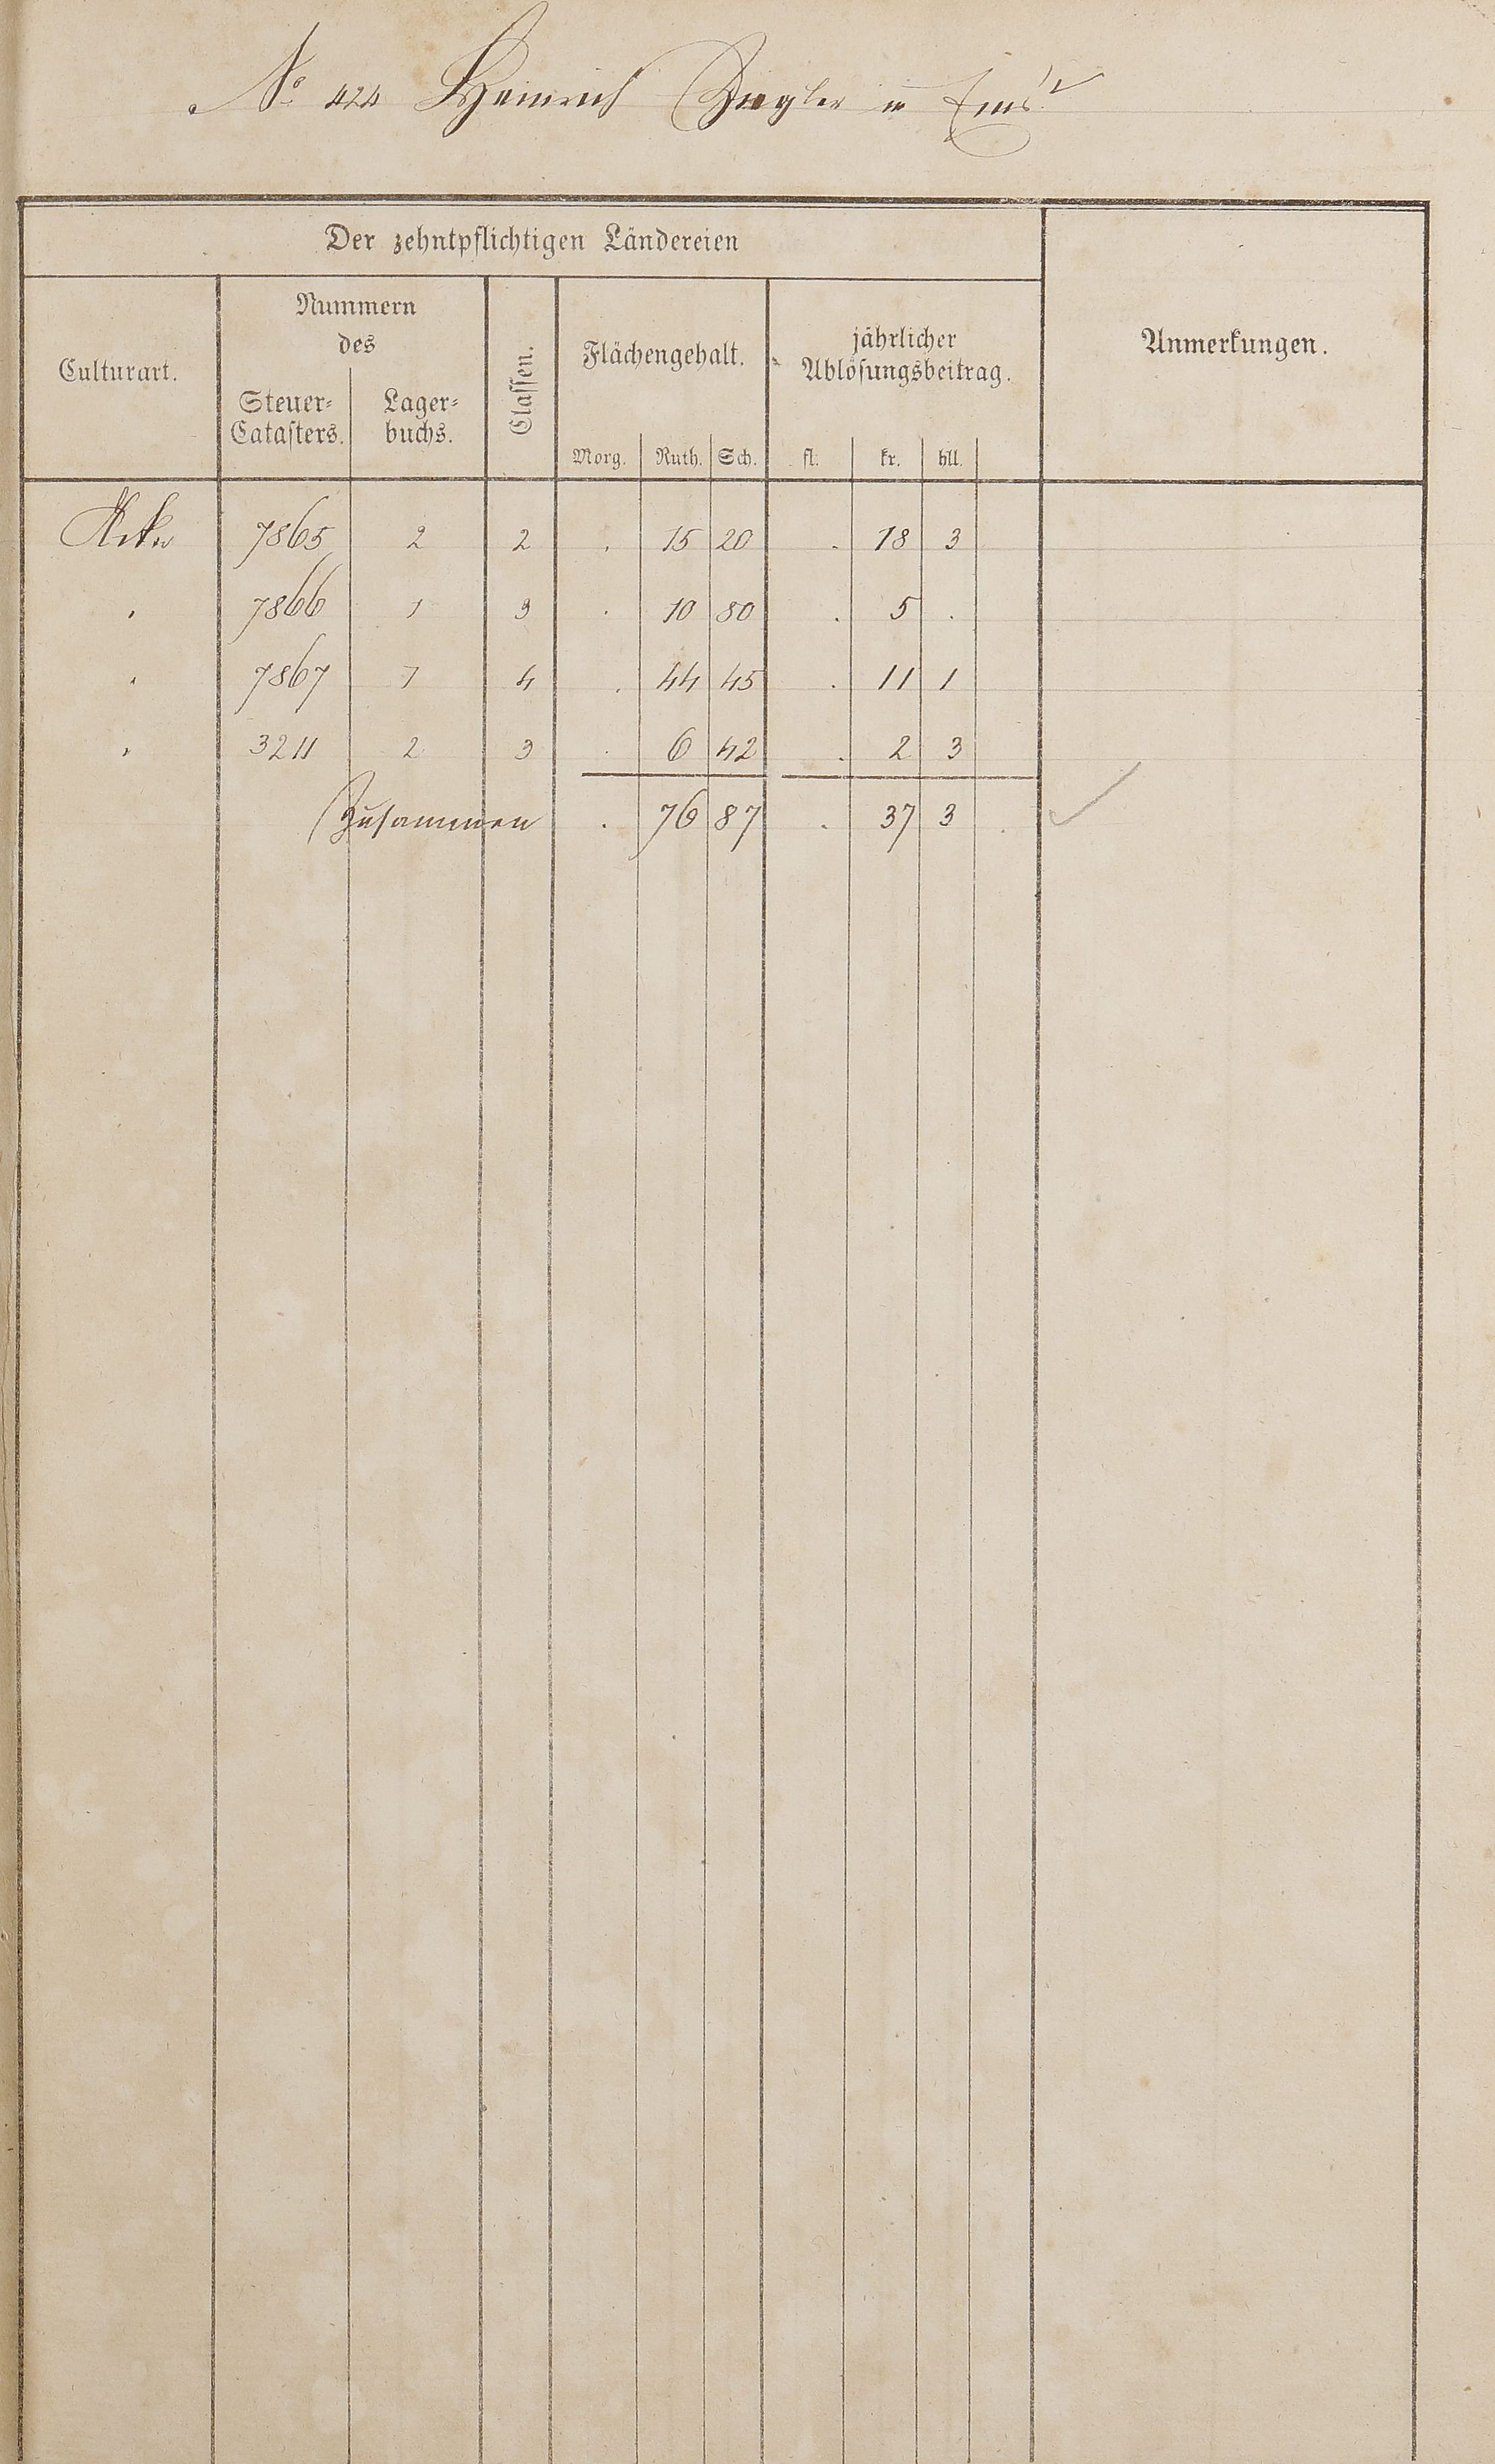 No 424 Heinrich Ziegler in Ems.
Der zehntpflichtigen Ländereien
Culturart.
Nummern
des
Steuer-
Catasters.
Lager-
buchs.
Classen.
Flächengehalt.
Morg. Ruth. Sch.
jährlicher
Ablösungsbeitrag.
fl. kr. hll.
Anmerkungen.
Acker 7865 2 2 . 15 20 . 18 3
" 7866 1 3 . 10 80 . 5 .
" 7867 1 4 . 44 45 . 11 1
" 3211 2 3 . 6 42 . 2 3
Zusammen . 76 87 . 37 3